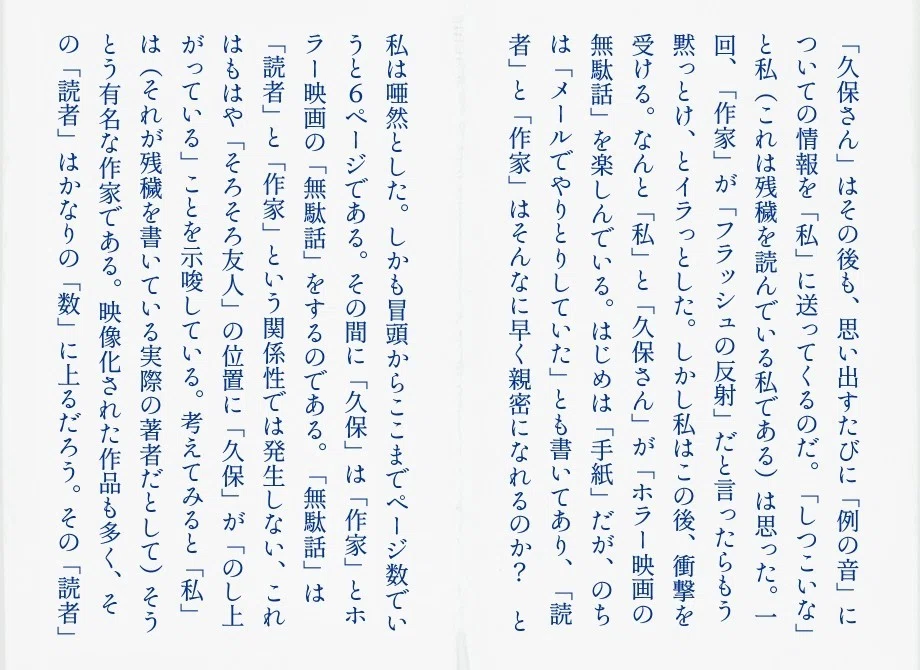 「久保さん」はその後も、思い出すたびに「例の音」に
ついての情報を「私」に送ってくるのだ。「しつこいな」
と私（これは残穢を読んでいる私である）は思った。一
回、「作家」が「フラッシュの反射」だと言ったらもう
黙っとけ、とイラっとした。しかし私はこの後、衝撃を
受ける。なんと「私」と「久保さん」が「ホラー映画の
無駄話」を楽しんでいる。はじめは「手紙」だが、のち
は「メールでやりとりしていた」とも書いてあり、「読
者」と「作家」はそんなに早く親密になれるのか？　と
私は唖然とした。しかも冒頭からここまでページ数でい
うと６ページである。その間に「久保」は「作家」とホ
ラー映画の「無駄話」をするのである。「無駄話」は
「読者」と「作家」という関係性では発生しない、これ
はもはや「そろそろ友人」の位置に「久保」が「のし上
がっている」ことを示唆している。考えてみると「私」
は（それが残穢を書いている実際の著者だとして）そう
とう有名な作家である。映像化された作品も多く、そ
の「読者」はかなりの「数」に上るだろう。その「読者」